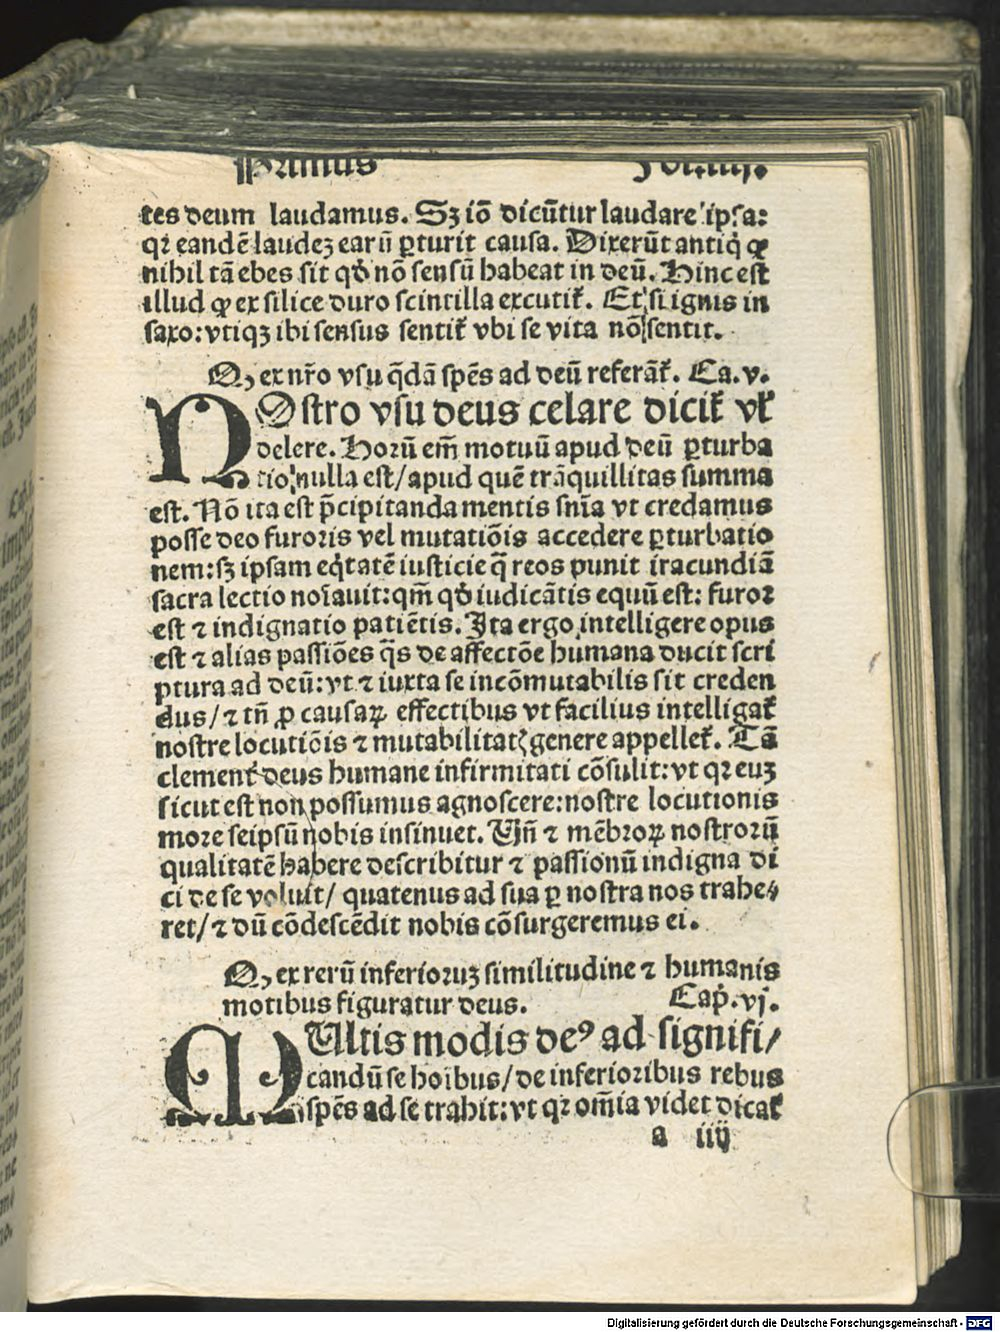 Primus
tes deum laudamus. Sꝫ iō dicūtur laudare ipsa:
qꝛ eandē laudeꝫ earū ꝑturit causa. Dixerūt antiqͥ ꝙ
nihil tā ebes sit qđ nō sensū habeat in deū. Hinc est
illud ꝙ ex silice duro scintilla excutit̃. Et si ignis in
saxo: vtiqꝫ ibi sensus sentit̃ vbi se vita nō sentit.
Q, ex nr̄o vsu q̄dā spēs ad deū referāt̃. Ca. v.
NOstro vsu deus celare dicit̃ vł
delere. Hoꝛū em̄ motuū apud deū ꝑturba
tio nulla est/ apud quē trāquillitas summa
est. Nō ita est p̄cipitanda mentis sn̄ia vt credamus
posse deo furoꝛis vel mutatiōis accedere ꝑturbatio
nem: sꝫ ipsam eqͥtatē iusticie q̄ reos punit iracundiā
sacra lectio noīauit: qm̄ qđ iudicātis equū est: furoꝛ
est ⁊ indignatio patiētis. Ita ergo intelligere opus
est ⁊ alias passiōes q̄s de affectōe humana ducit scri
ptura ad deū: vt ⁊ iuxta se incōmutabilis sit creden
dus/ ⁊ tn̄ ꝓ causaꝝ effectibus vt facilius intelligat̃
nostre locutiōis ⁊ mutabilitatꝭ genere appellet̃. Tā
clement̃ deus humane infirmitati cōsulit: vt qꝛ euꝫ
sicut est non possumus agnoscere: nostre locutionis
more seipsū nobis insinuet. Vn̄ ⁊ mēbroꝝ nostroꝛū
qualitatē habere describitur ⁊ passionū indigna di
ci de se voluit/ quatenus ad sua ꝑ nostra nos trahe⸗
ret/ ⁊ dū cōdescēdit nobis cōsurgeremus ei.
Q, ex rerū inferioꝛuꝫ similitudine ⁊ humanis
motibus figuratur deus. Cap̊. vj.
MUltis modis deꝰ ad signifi/
candū se hoībus/ de inferioꝛibus rebus
spēs ad se trahit: vt qꝛ om̄ia videt dicat̃
a iiij
Digitalisierung gefördert durch die Deutsche Forschungsgemeinschaft - DFG